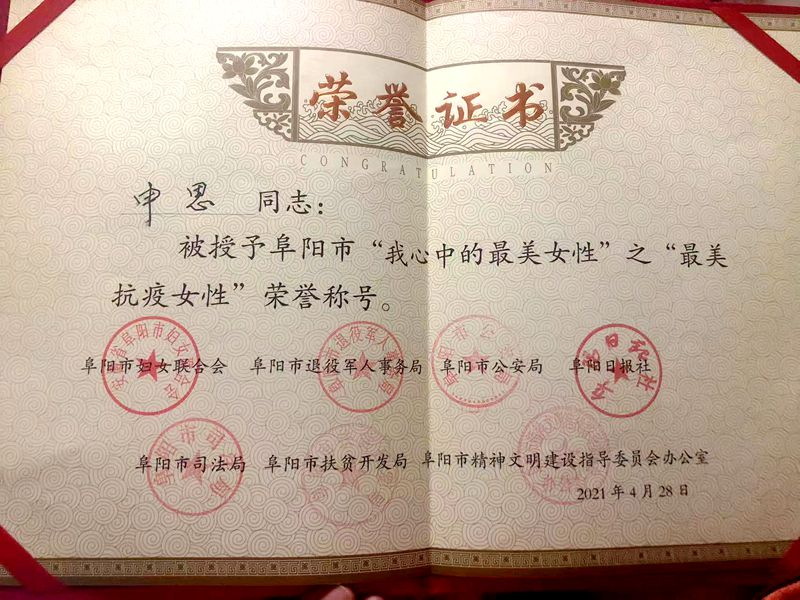 荣誉证书
CONGRATULATION
申思 同志：
被授予阜阳市“我心中的最美女性”之“最美
抗疫女性”荣誉称号。
阜阳市妇女联合会 阜阳市退役军人事务局 阜阳市公安局 阜阳日报社
阜阳市司法局 阜阳市扶贫开发局 阜阳市精神文明建设指导委员会办公室
2021年4月28日